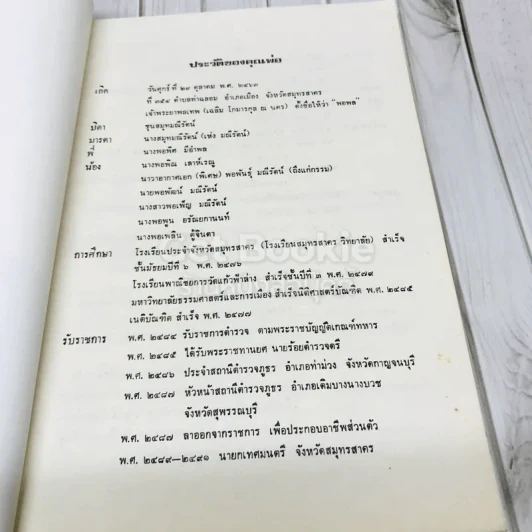 ประวัติของคุณพ่อ
เกิด วันศุกร์ ที่ ๒๙ ตุลาคม พ.ศ. ๒๔๖๓
ที่ ๓๕๔ ตำบลท่าฉลอม อำเภอเมือง จังหวัดสมุทรสาคร
เจ้าพระยาพลเทพ (เฉลิม โกมารกุล ณ นคร) ตั้งชื่อให้ว่า "พอพล"
บิดา ขุนสมุทมณีรัตน์
มารดา นางสมุทมณีรัตน์ (เห่ง มณีรัตน์)
พี่ นางพอพิศ มีอำพล
น้อง นางพอพิณ เสาห์เรณู
นาวาอากาศเอก (พิเศษ) พอพันธุ์ มณีรัตน์ (ถึงแก่กรรม)
นายพอพัฒน์ มณีรัตน์
นางสาวพอเพ็ญ มณีรัตน์
นางพอพูน อรัณยกานนท์
นางพอเพลิน ตู้จินดา
การศึกษา โรงเรียนประจำจังหวัดสมุทรสาคร (โรงเรียนสมุทรสาคร วิทยาลัย) สำเร็จ
ชั้นมัธยมปีที่ ๖ พ.ศ. ๒๔๗๖
โรงเรียนพาณิชยการวัดแก้วฟ้าล่าง สำเร็จชั้นปีที่ ๓ พ.ศ. ๒๔๗๙
มหาวิทยาลัยธรรมศาสตร์และการเมือง สำเร็จนิติศาสตร์บัณฑิต พ.ศ. ๒๔๘๕
เนติบัณฑิต สำเร็จ พ.ศ. ๒๔๗๗
รับราชการ พ.ศ. ๒๔๘๔ รับราชการตำรวจ ตามพระราชบัญญัติเกณฑ์ทหาร
พ.ศ. ๒๔๘๕ ได้รับพระราชทานยศ นายร้อยตำรวจตรี
พ.ศ. ๒๔๘๖ ประจำสถานีตำรวจภูธร อำเภอท่าม่วง จังหวัดกาญจนบุรี
พ.ศ. ๒๔๘๗ หัวหน้าสถานีตำรวจภูธร อำเภอเดิมบางนางบวช
จังหวัดสุพรรณบุรี
พ.ศ. ๒๔๘๗ ลาออกจากราชการ เพื่อประกอบอาชีพส่วนตัว
พ.ศ. ๒๔๘๙—๒๔๙๑ นายกเทศมนตรี จังหวัดสมุทรสาคร